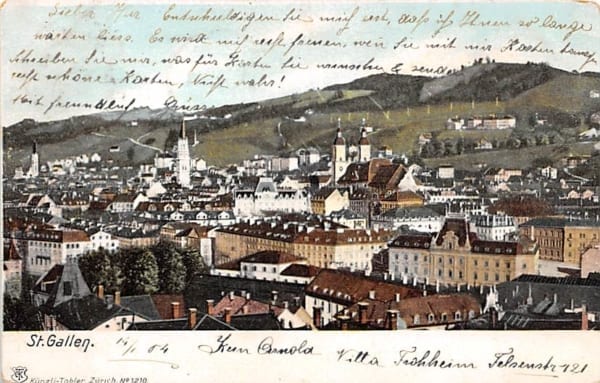 Lieber Herr Entschuldigen Sie mich erst, dass ich Ihnen so lange
warten liess. Es wird mich recht freuen, wen Sie mit mir Karten tausch
Schreiben Sie mir, was für Karten Sie wünschen & sende
recht schöne Karten, Nicht wahr!
Mit freundlich Gruss
St. Gallen.
15/1 04
Kurn Arnold Villa Fröhheim Felsenstr 121
Künzli-Tobler, Zürich. No 1210.